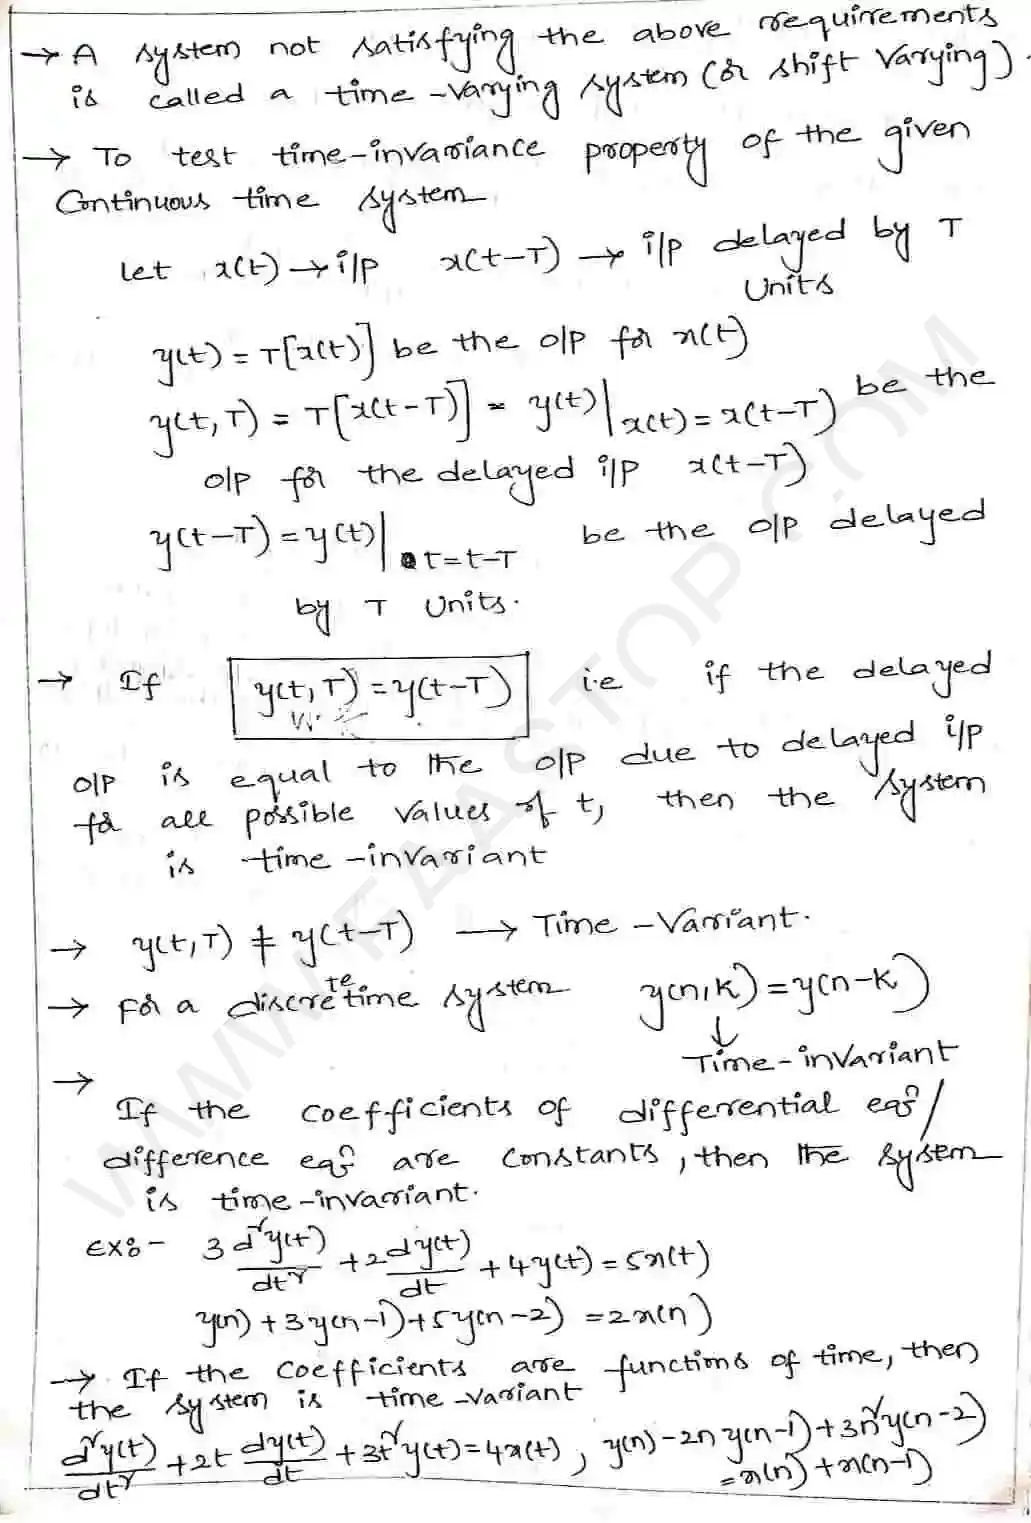 → A system not satisfying the above requirements
is called a time-varying system (or shift varying).
→ To test time-invariance property of the given
Continuous time system
Let x(t) → i/p x(t-T) → i/p delayed by T
Units
y(t) = T[x(t)] be the o/p for x(t)
y(t,T) = T[x(t-T)] = y(t)|x(t)=x(t-T) be the
o/p for the delayed i/p x(t-T)
y(t-T) = y(t)|t=t-T be the o/p delayed
by T Units.
→ If y(t,T) = y(t-T) i.e if the delayed
o/p is equal to the o/p due to delayed i/p
for all possible values of t, then the system
is time-invariant
→ y(t,T) ≠ y(t-T) → Time-Variant.
→ For a discrete time system y(n,k) = y(n-k)
↓
Time-invariant
→
If the coefficients of differential eqn/
difference eqn are constants, then the system
is time-invariant.
Ex:- 3 d²y(t)/dt² + 2 dy(t)/dt + 4y(t) = 5x(t)
y(n) + 3y(n-1) + 5y(n-2) = 2x(n)
→ If the coefficients are functions of time, then
the system is time-variant
d²y(t)/dt² + 2t dy(t)/dt + 3t²y(t) = 4x(t), y(n) - 2n y(n-1) + 3n²y(n-2)
= x(n) + x(n-1)
WWW.FAASTOP.COM